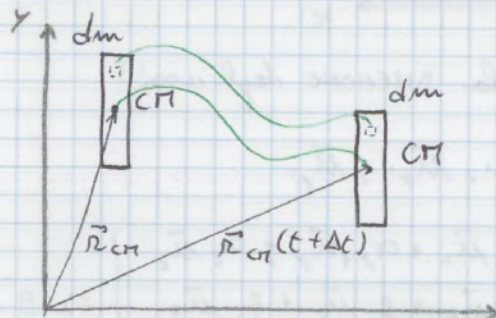 y
dm
CM
dm
CM
r⃗CM
r⃗CM (t + Δt)